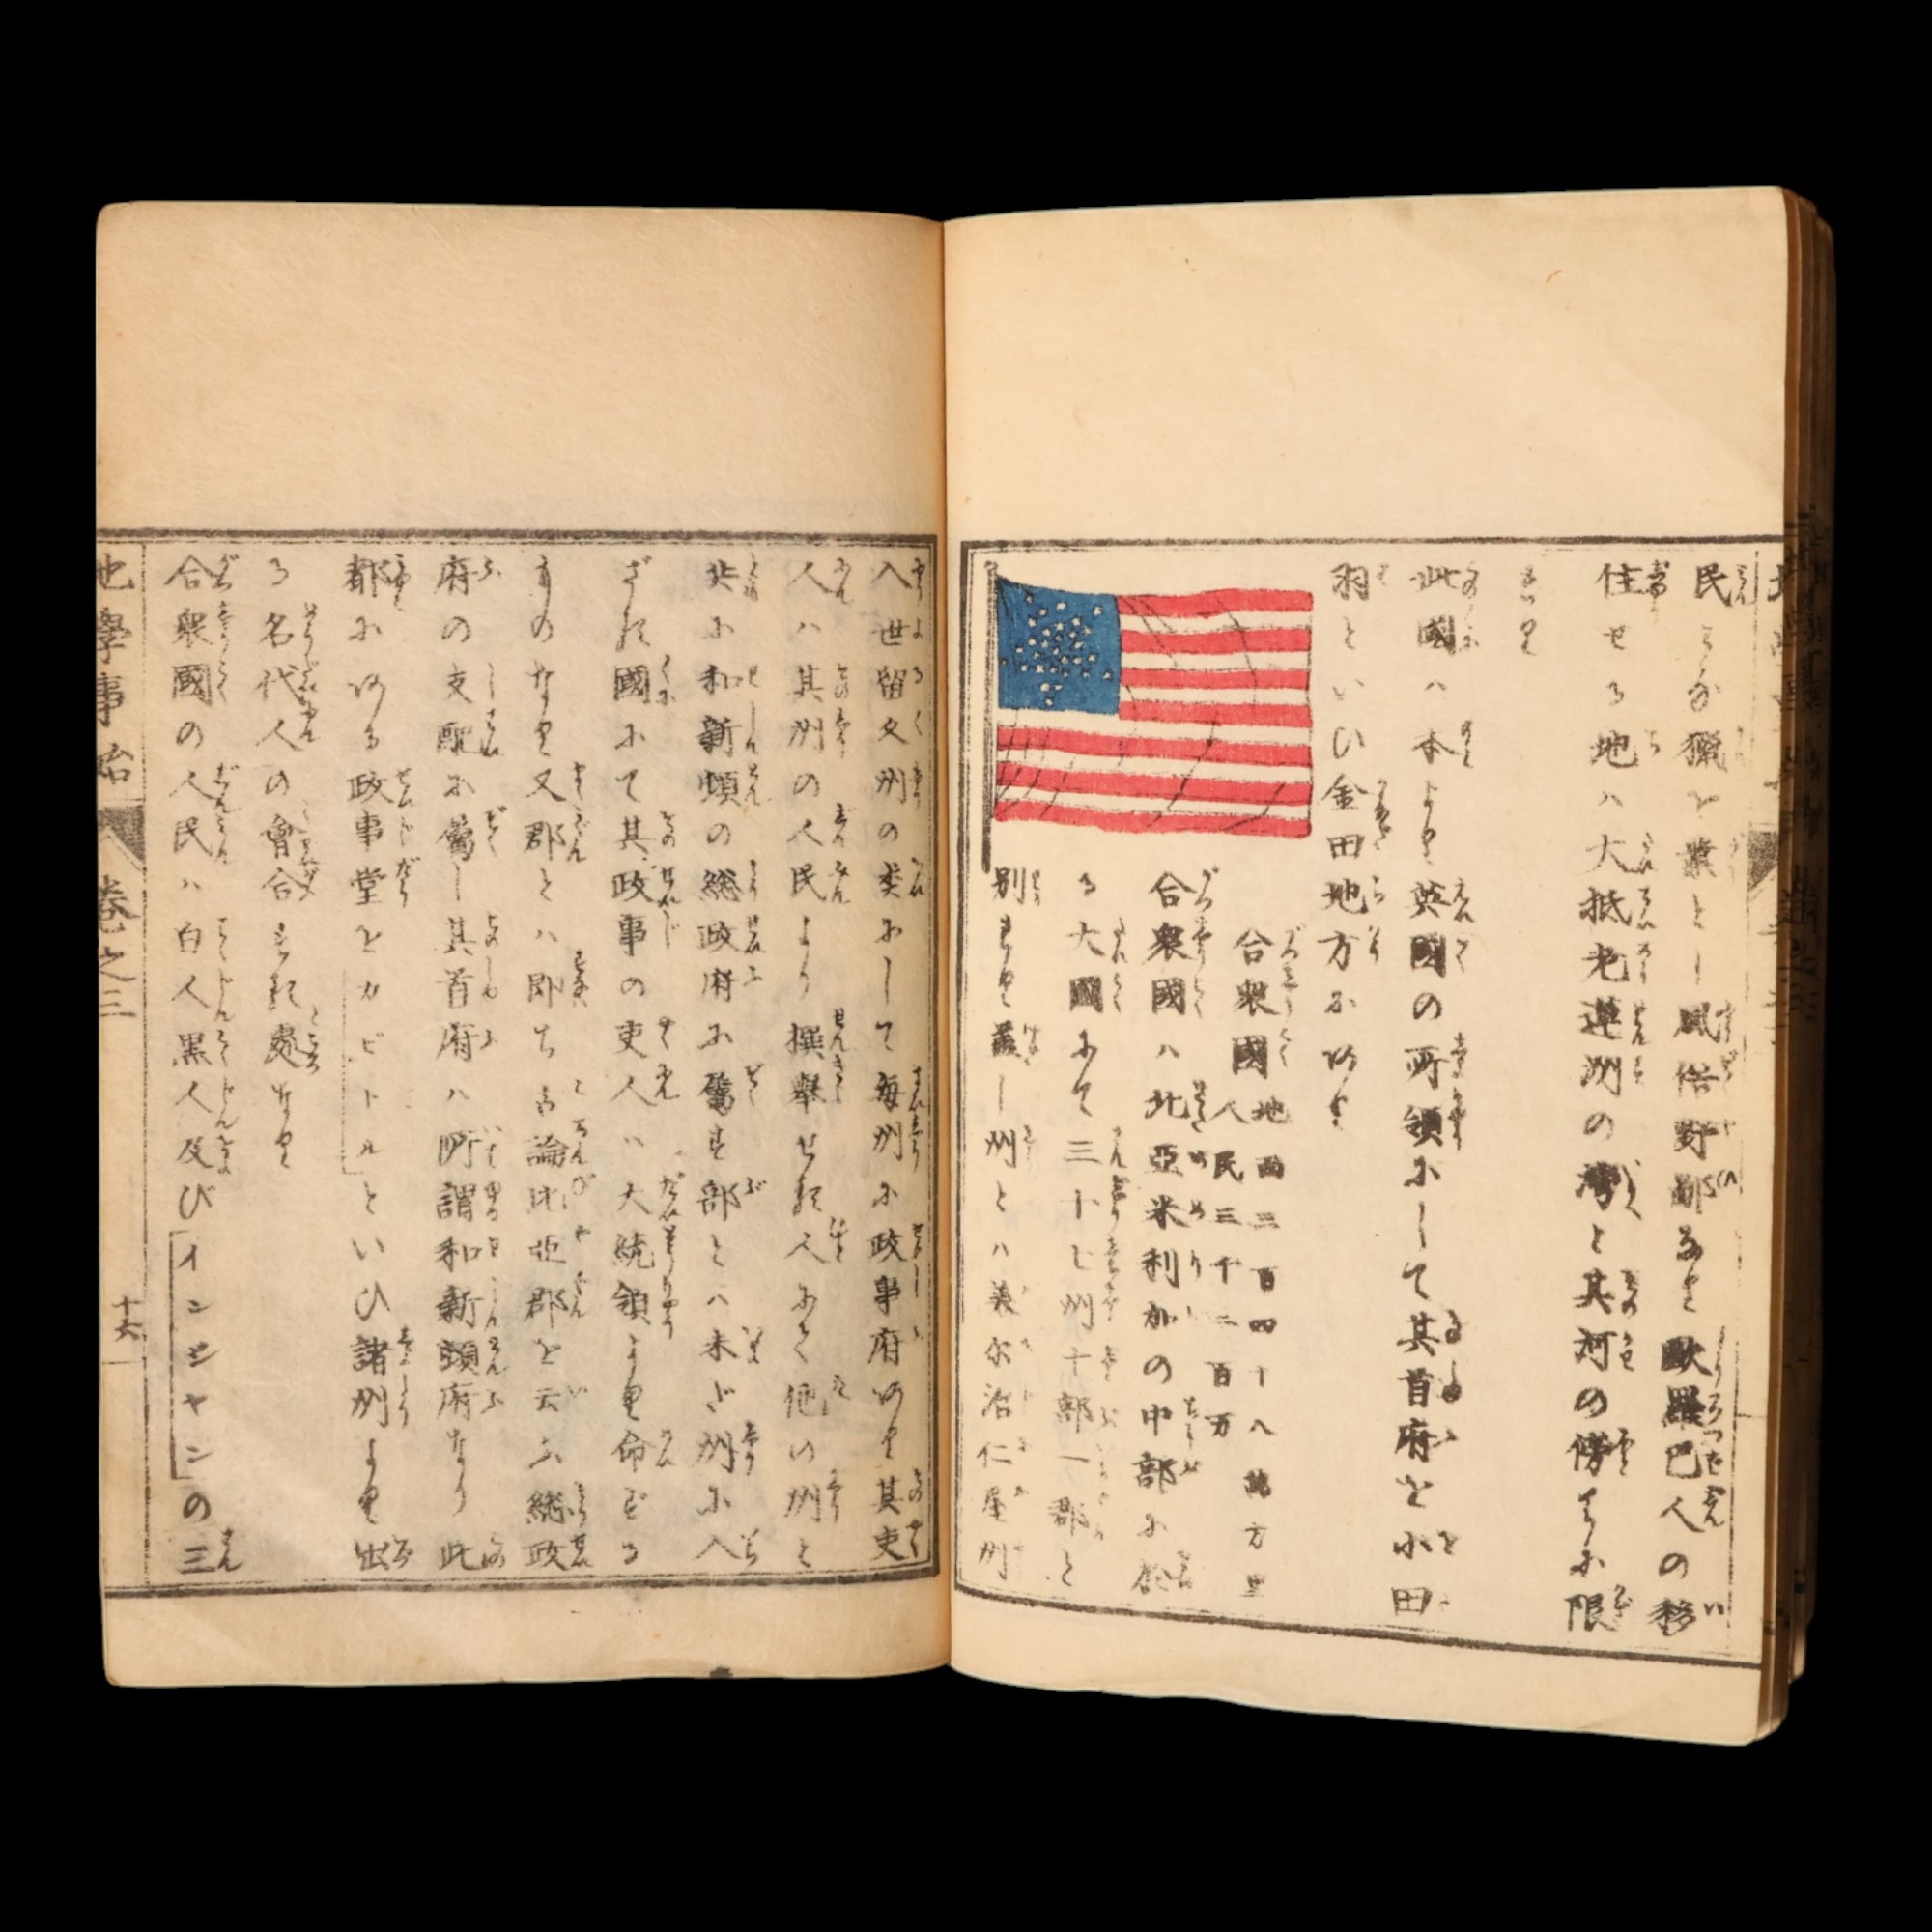 民みな獵を業とし風俗野鄙なり歐羅巴人の移
住せる地ハ大抵老蓮洲の灣と其河の傍らに限
れり
此國ハ本より英國の所領にして其首府を小田
羽といひ金田地方にあり
合衆國 地面三百四十八萬方里
人民三千二百万
合衆國ハ北亞米利加の中部に在
る大國にて三十七州十部一郡と
別れり蓋し州とハ義尔治仁屋州
入世留久州の类にして每州に政事府あり其吏
人ハ其州の人民より撰舉せる人にて他の州と
共に和新頓の総政府に屬す部とハ未だ州に入
ざる國にて其政事の吏人ハ大統領より命ずる
ものなり又郡とハ即ち古論比亞郡を云ふ総政
府の支配に屬し其首府ハ所謂和新頓府なり此
都にある政事堂をカピトルといひ諸州より出
る名代人の會合する處なり
合衆國の人民ハ白人黑人及びインヂヤンの三
地學事始 卷之三
十六